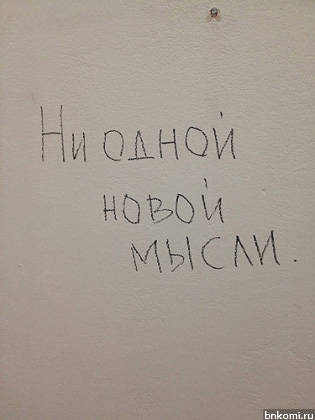 Ни одной
новой
мысли.
bnkomi.ru